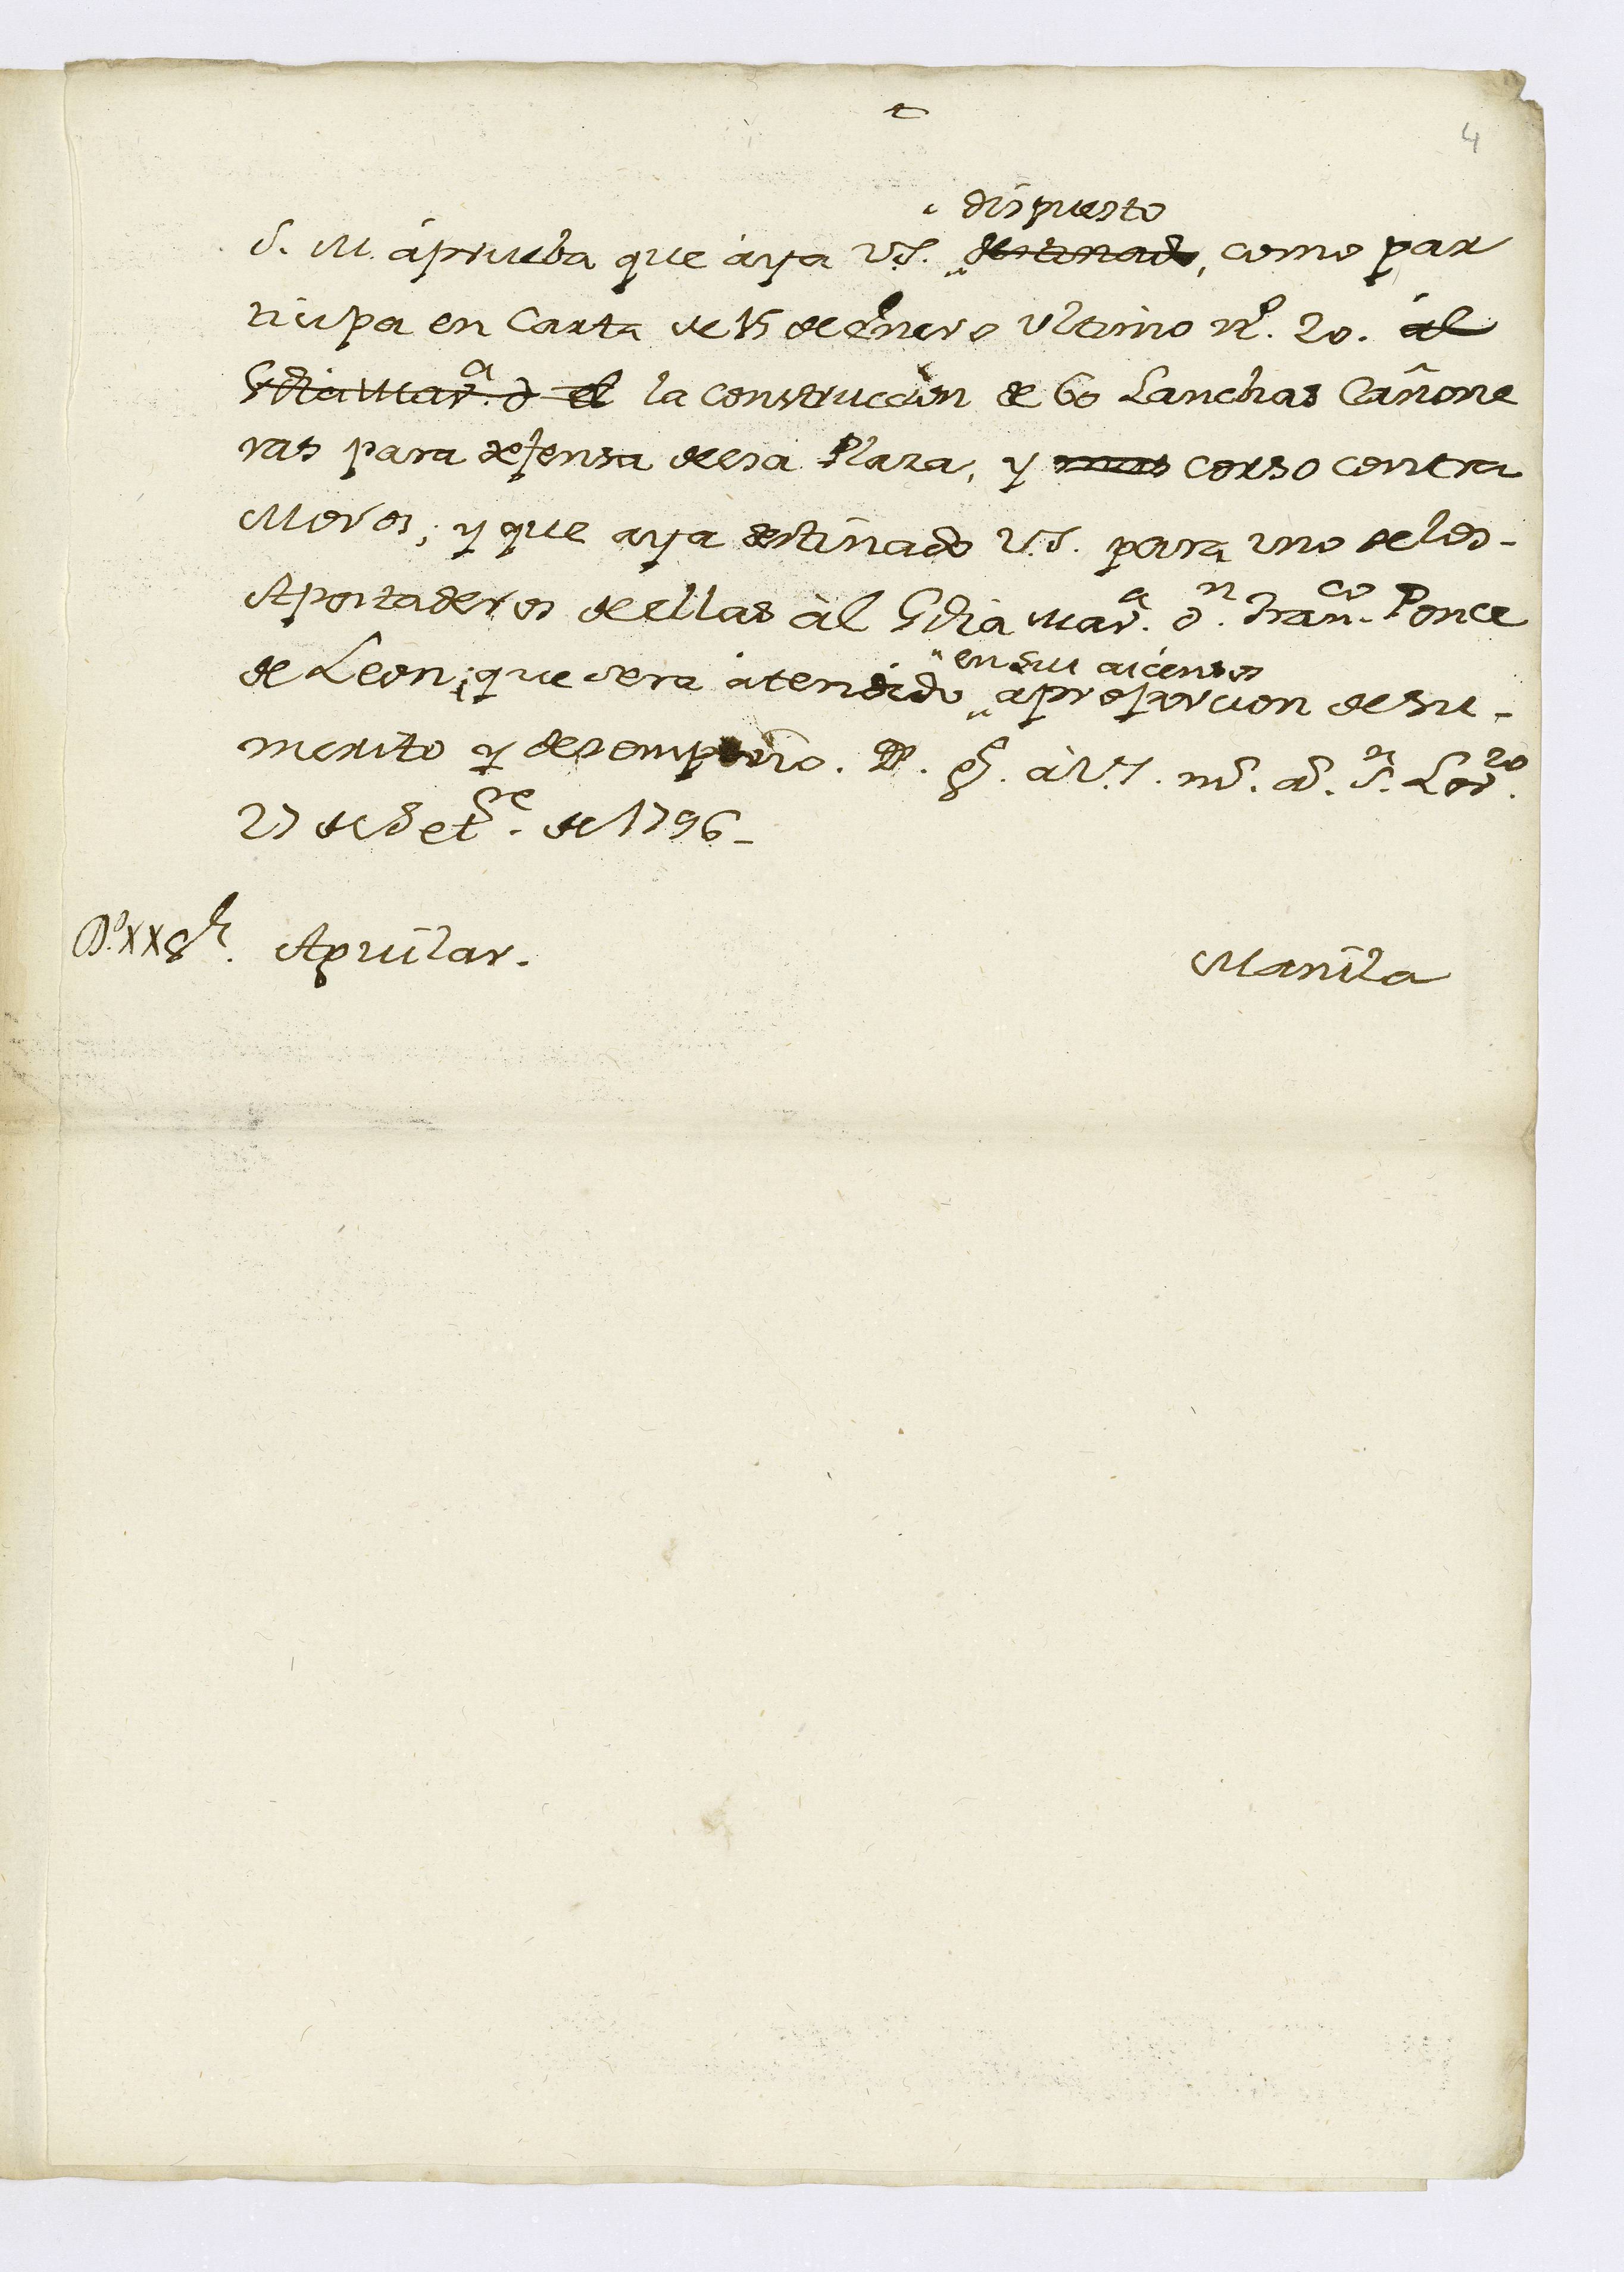 4
dispuesto
S. M. àprueba que àya V.S. destinado, como par
ticipa en Carta de 15 de Enero ultimo nº. 20. al
Gdia Marª. d el la construccion de 60 Lanchas Cañone
ras para defensa de esa Plaza, y corso contra
Moros; y que aya destinado V.S. para uno de los-
Apostaderos de ellas àl Gdia Marª. Dⁿ. Franᶜᵒ. Ponce
en sus ascensos
de Leon; que sera atendido àproporcion de su-
merito y desempeño. D. gᵉ. à V.S. mˢ. aˢ. Sⁿ. Lorᶻᵒ.
27 de Setʳᵉ. de 1796-
Aguilar.
Manila